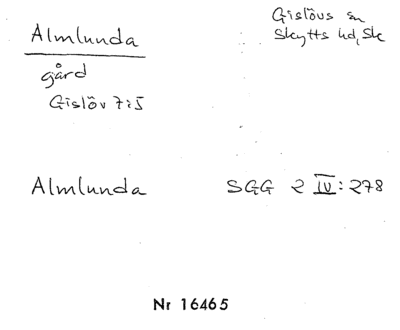 Almlunda
Gislövs sn
Skytts hd, Sk
gård
Gislöv 7:5
Almlunda SGG 2 IV: 278
Nr 16465